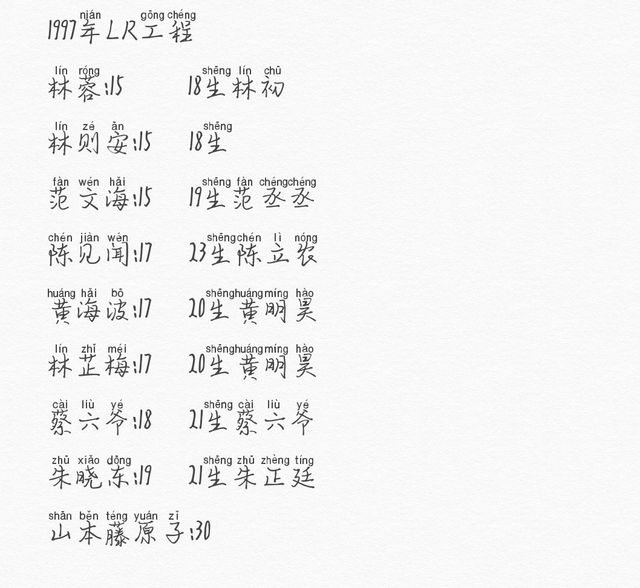 nián gōng chéng
1997年LR工程
lín róng shēng lín chū
林蓉:15 18生林初
lín zé ān shēng
林则安:15 18生
fàn wén hǎi shēng fàn chéngchéng
范文海:15 19生范丞丞
chén jiàn wén shēng chén lì nóng
陈见闻:17 23生陈立农
huáng hǎi bō shēng huáng míng hào
黄海波:17 20生黄明昊
lín zhǐ méi shēng huáng míng hào
林芷梅:17 20生黄明昊
cài liù yé shēng cài liù yé
蔡六爷:18 21生蔡六爷
zhū xiǎo dōng shēng zhū zhèng tíng
朱晓东:19 21生朱正廷
shān běn téng yuán zǐ
山本藤原子:30